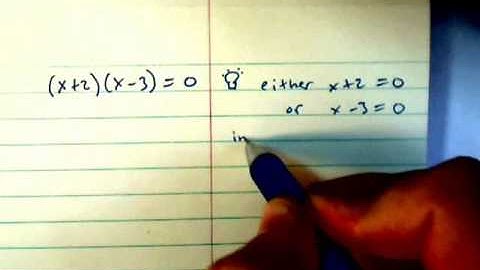 (x+2)(x-3) = 0 either x+2 = 0
or x-3 = 0
in